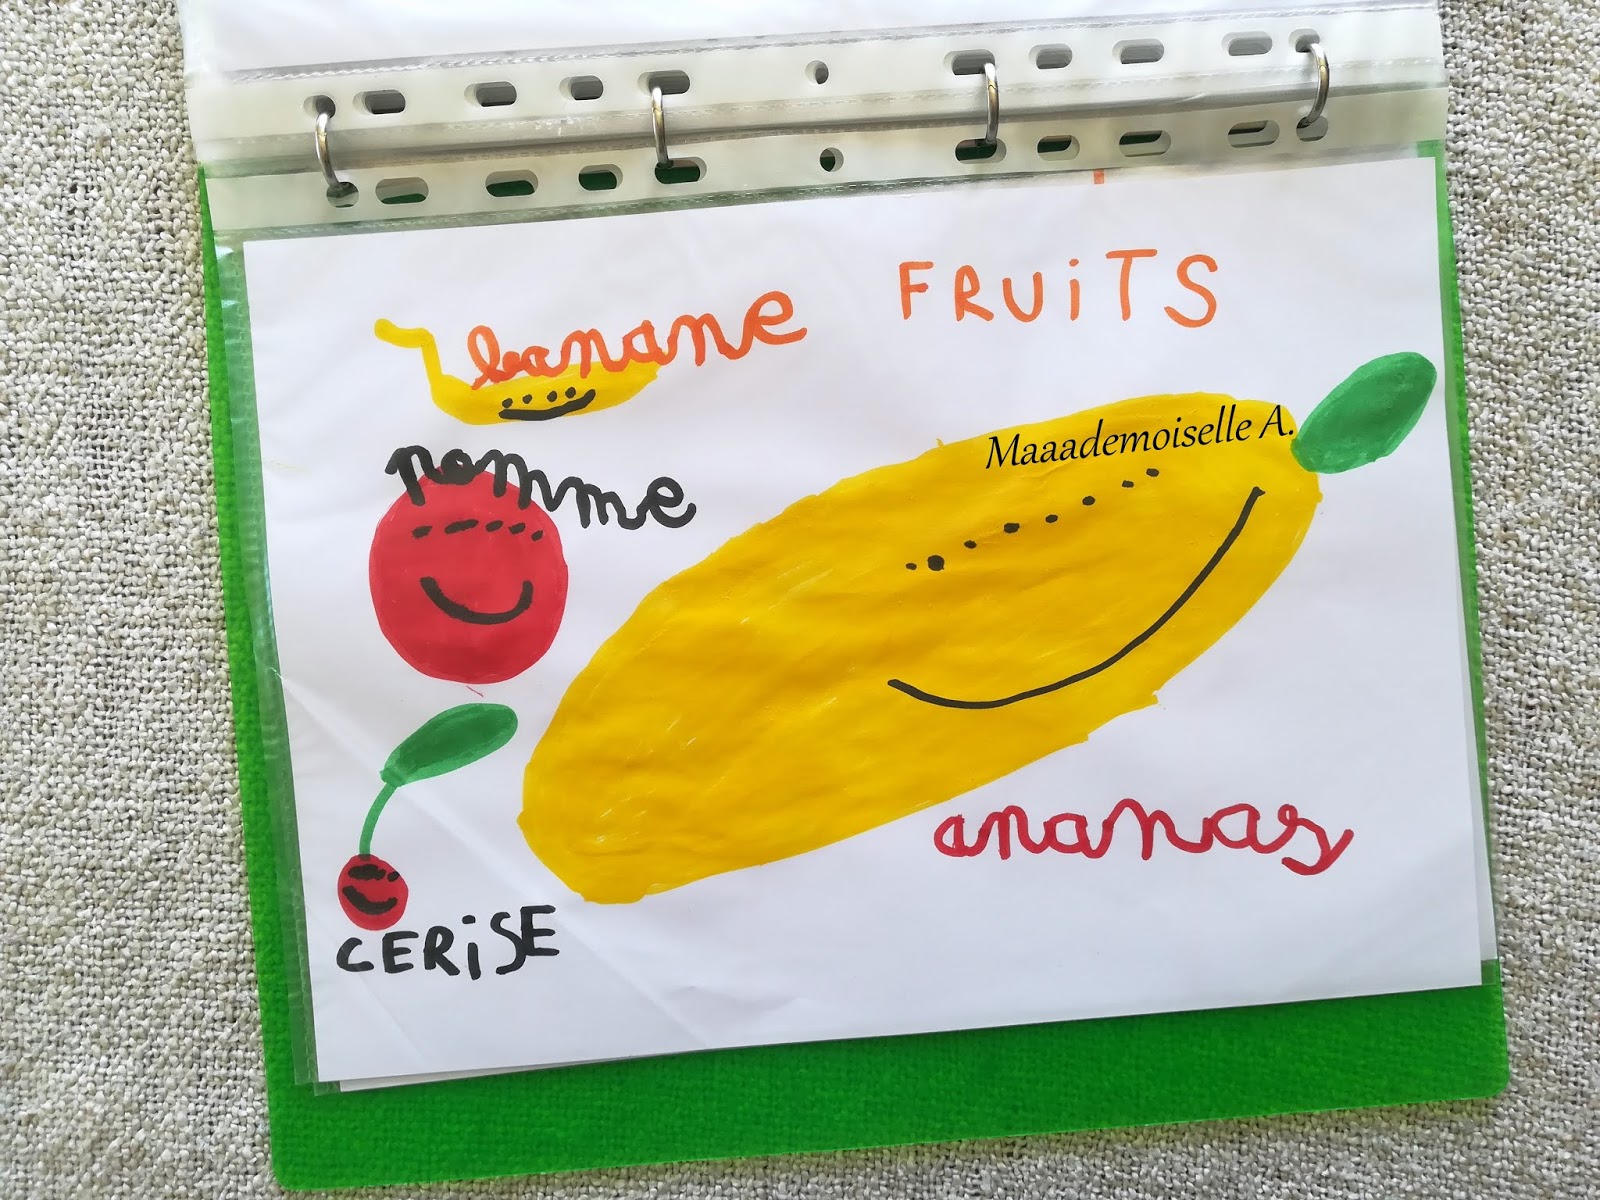 FRUiTS
banane
pomme
Maaademoiselle A.
ananas
CERiSE